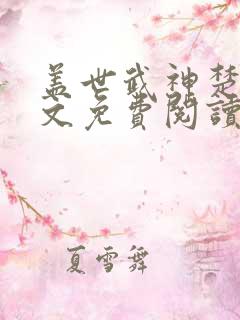 盖世武神楚
文免費閱讀
夏雪舞